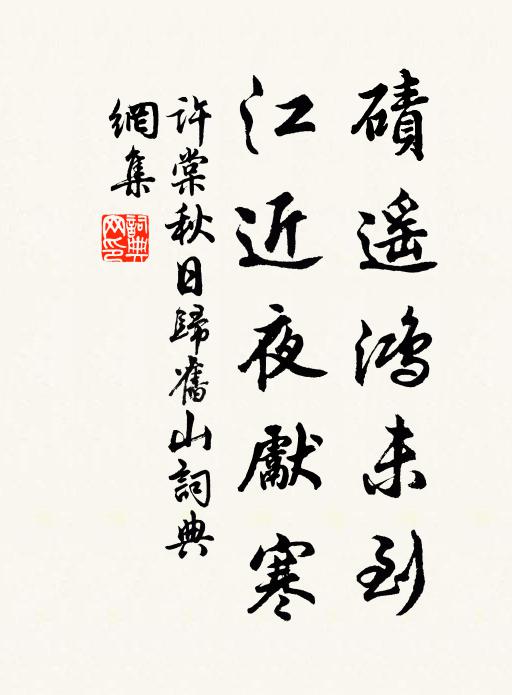 磧遥鴻未到
江近夜獻寒
許棠秋日歸舊山詞典
網集
詞典網印